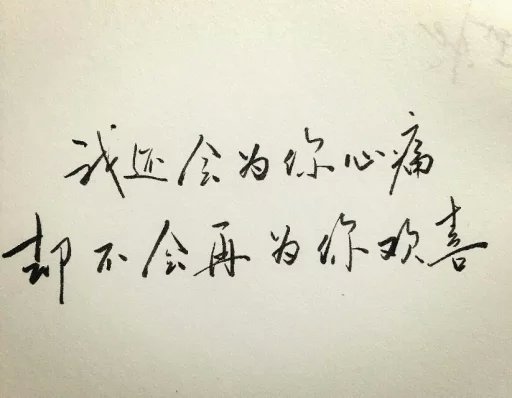 我还会为你心痛
却不会再为你欢喜